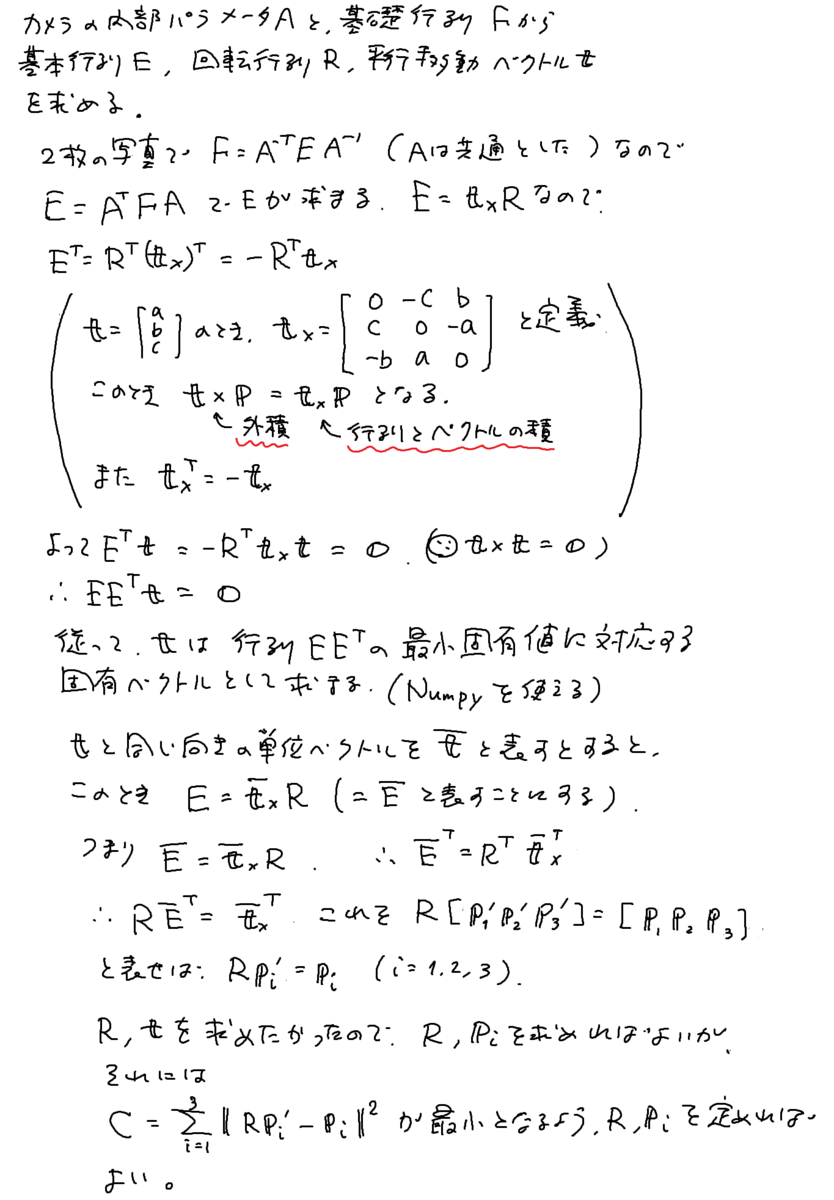 カメラの内部パラメータAと、基礎行列 Fから
基本行列 E, 回転行列 R, 平行移動 ベクトル t
を求める.
2枚の写真で F = A⁻ᵀ E A⁻¹ (Aは共通とした) なので
E = AᵀFA で Eが求まる. E = tₓR なので
Eᵀ = Rᵀ(tₓ)ᵀ = -Rᵀtₓ
t = [a b c] のとき, tₓ = [0 -c b; c 0 -a; -b a 0] と定義
このとき t × P = tₓP となる.
↑外積 ↖行列とベクトルの積
また tₓᵀ = -tₓ
よって Eᵀt = -Rᵀtₓt = 0. (∵ t×t = 0)
∴ EEᵀt = 0
従って, tは 行列 EEᵀの 最小固有値に対応する
固有ベクトルとして求まる. (Numpyを使える)
tと同じ向きの単位ベクトルを t̄ と表すとすると,
このとき E = t̄ₓR (= Ē と表すことにする).
つまり Ē = t̄ₓR. ∴ Ēᵀ = Rᵀ t̄ₓᵀ
∴ RĒᵀ = t̄ₓᵀ これを R[P₁′ P₂′ P₃′] = [P₁ P₂ P₃]
と表せば RPᵢ′ = Pᵢ (i = 1, 2, 3).
R, tを求めたかったので R, Pᵢを求めればよいが,
それには
C = Σ_{i=1}^{3} ‖RPᵢ′ - Pᵢ‖² が最小となるよう, R, Pᵢを定めれば
よい。